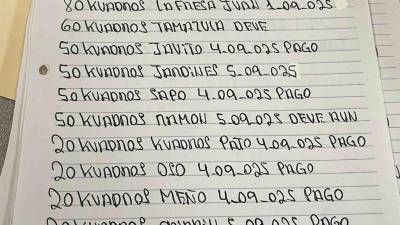 80 KUADROS LA FRESA JUAN 1_09_025
60 KUADROS TAMAZULA DEVE
50 KUADROS JAVITO 4_09_025 PAGO
50 KUADROS JARDINES 5_09_025
50 KUADROS SAPO 4_09_025 PAGO
50 KUADROS RAMON 5_09_025 DEVE AUN
20 KUADROS KUADROS PATO 4_09_025 PAGO
20 KUADROS OSO 4_09_025 PAGO
20 KUADROS MEÑO 4_09_025 PAGO
20 KUADROS 5_09_025 PAGO